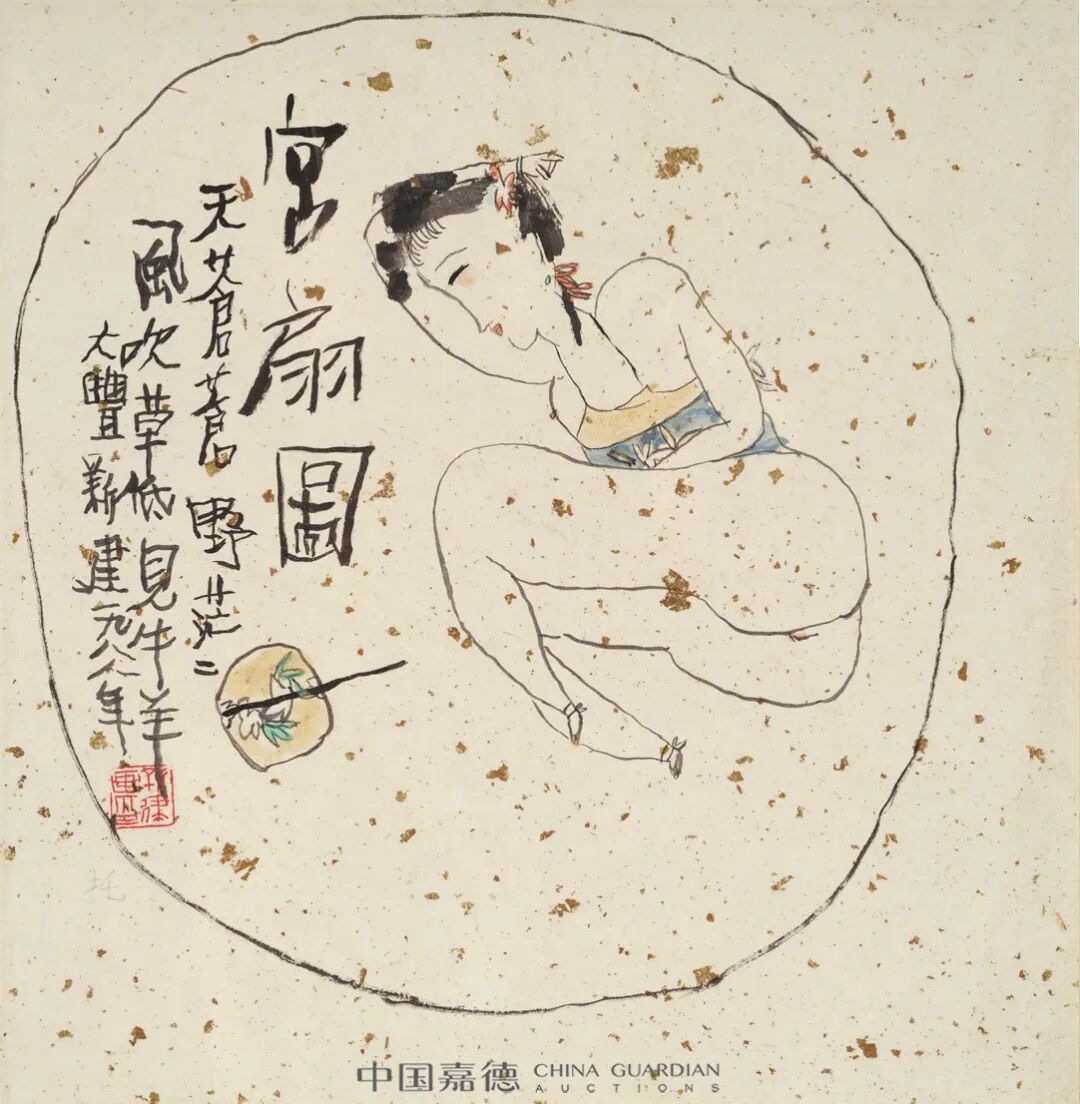 宫扇圖
天蒼蒼野茫二
風吹草低見牛羊
大豐新建一九八八年
中国嘉德 CHINA GUARDIAN
AUCTIONS